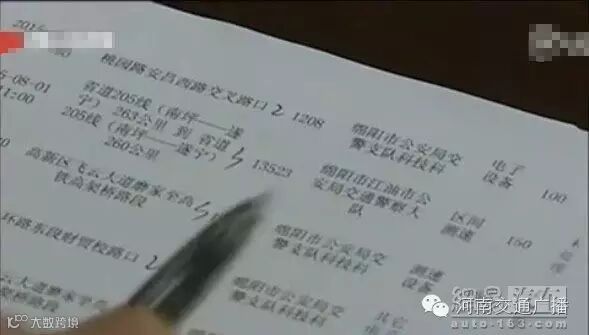 桃园路安昌西路交叉路口
1208
绵阳市公安局交
警支队科技科
电子
设备
100
08-01
省道205线（南坪——遂
宁）263公里 到 省道
205线（南坪——遂宁）
260公里
13523
绵阳市江油市公
安局交通警察大
队
区间
测速
150
高新区飞云大道磨家至高
铁高架桥路段
绵阳市公安局交
警支队科技科
测速
设备
环路东段财贸校路口
绵阳市公安局交
警支队科技科
其它
云大道磨家至高
大数跨境
河南交通广播
auto.163.com